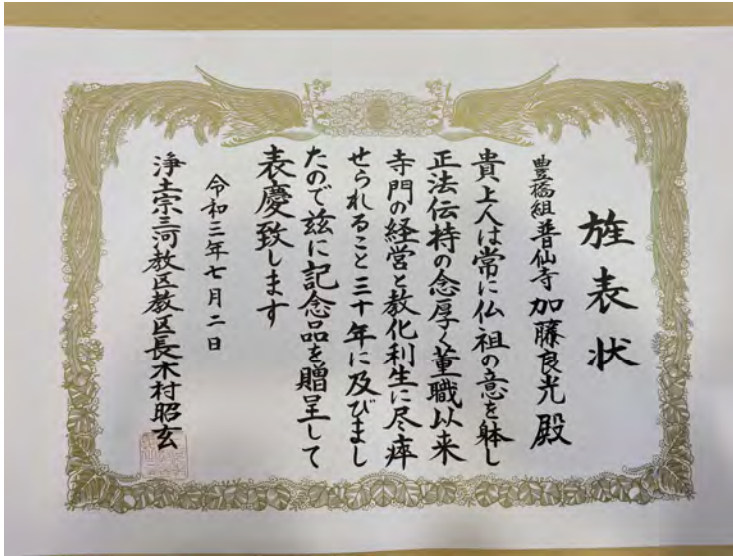 旌表状
豊橋組 普仙寺 加藤良光 殿
貴上人は常に仏祖の意を躰し
正法伝持の念厚く董職以来
寺門の経営と教化利生に尽瘁
せられること三十年に及びまし
たので茲に記念品を贈呈して
表慶致します
令和三年七月二日
浄土宗三河教区教区長木村昭玄